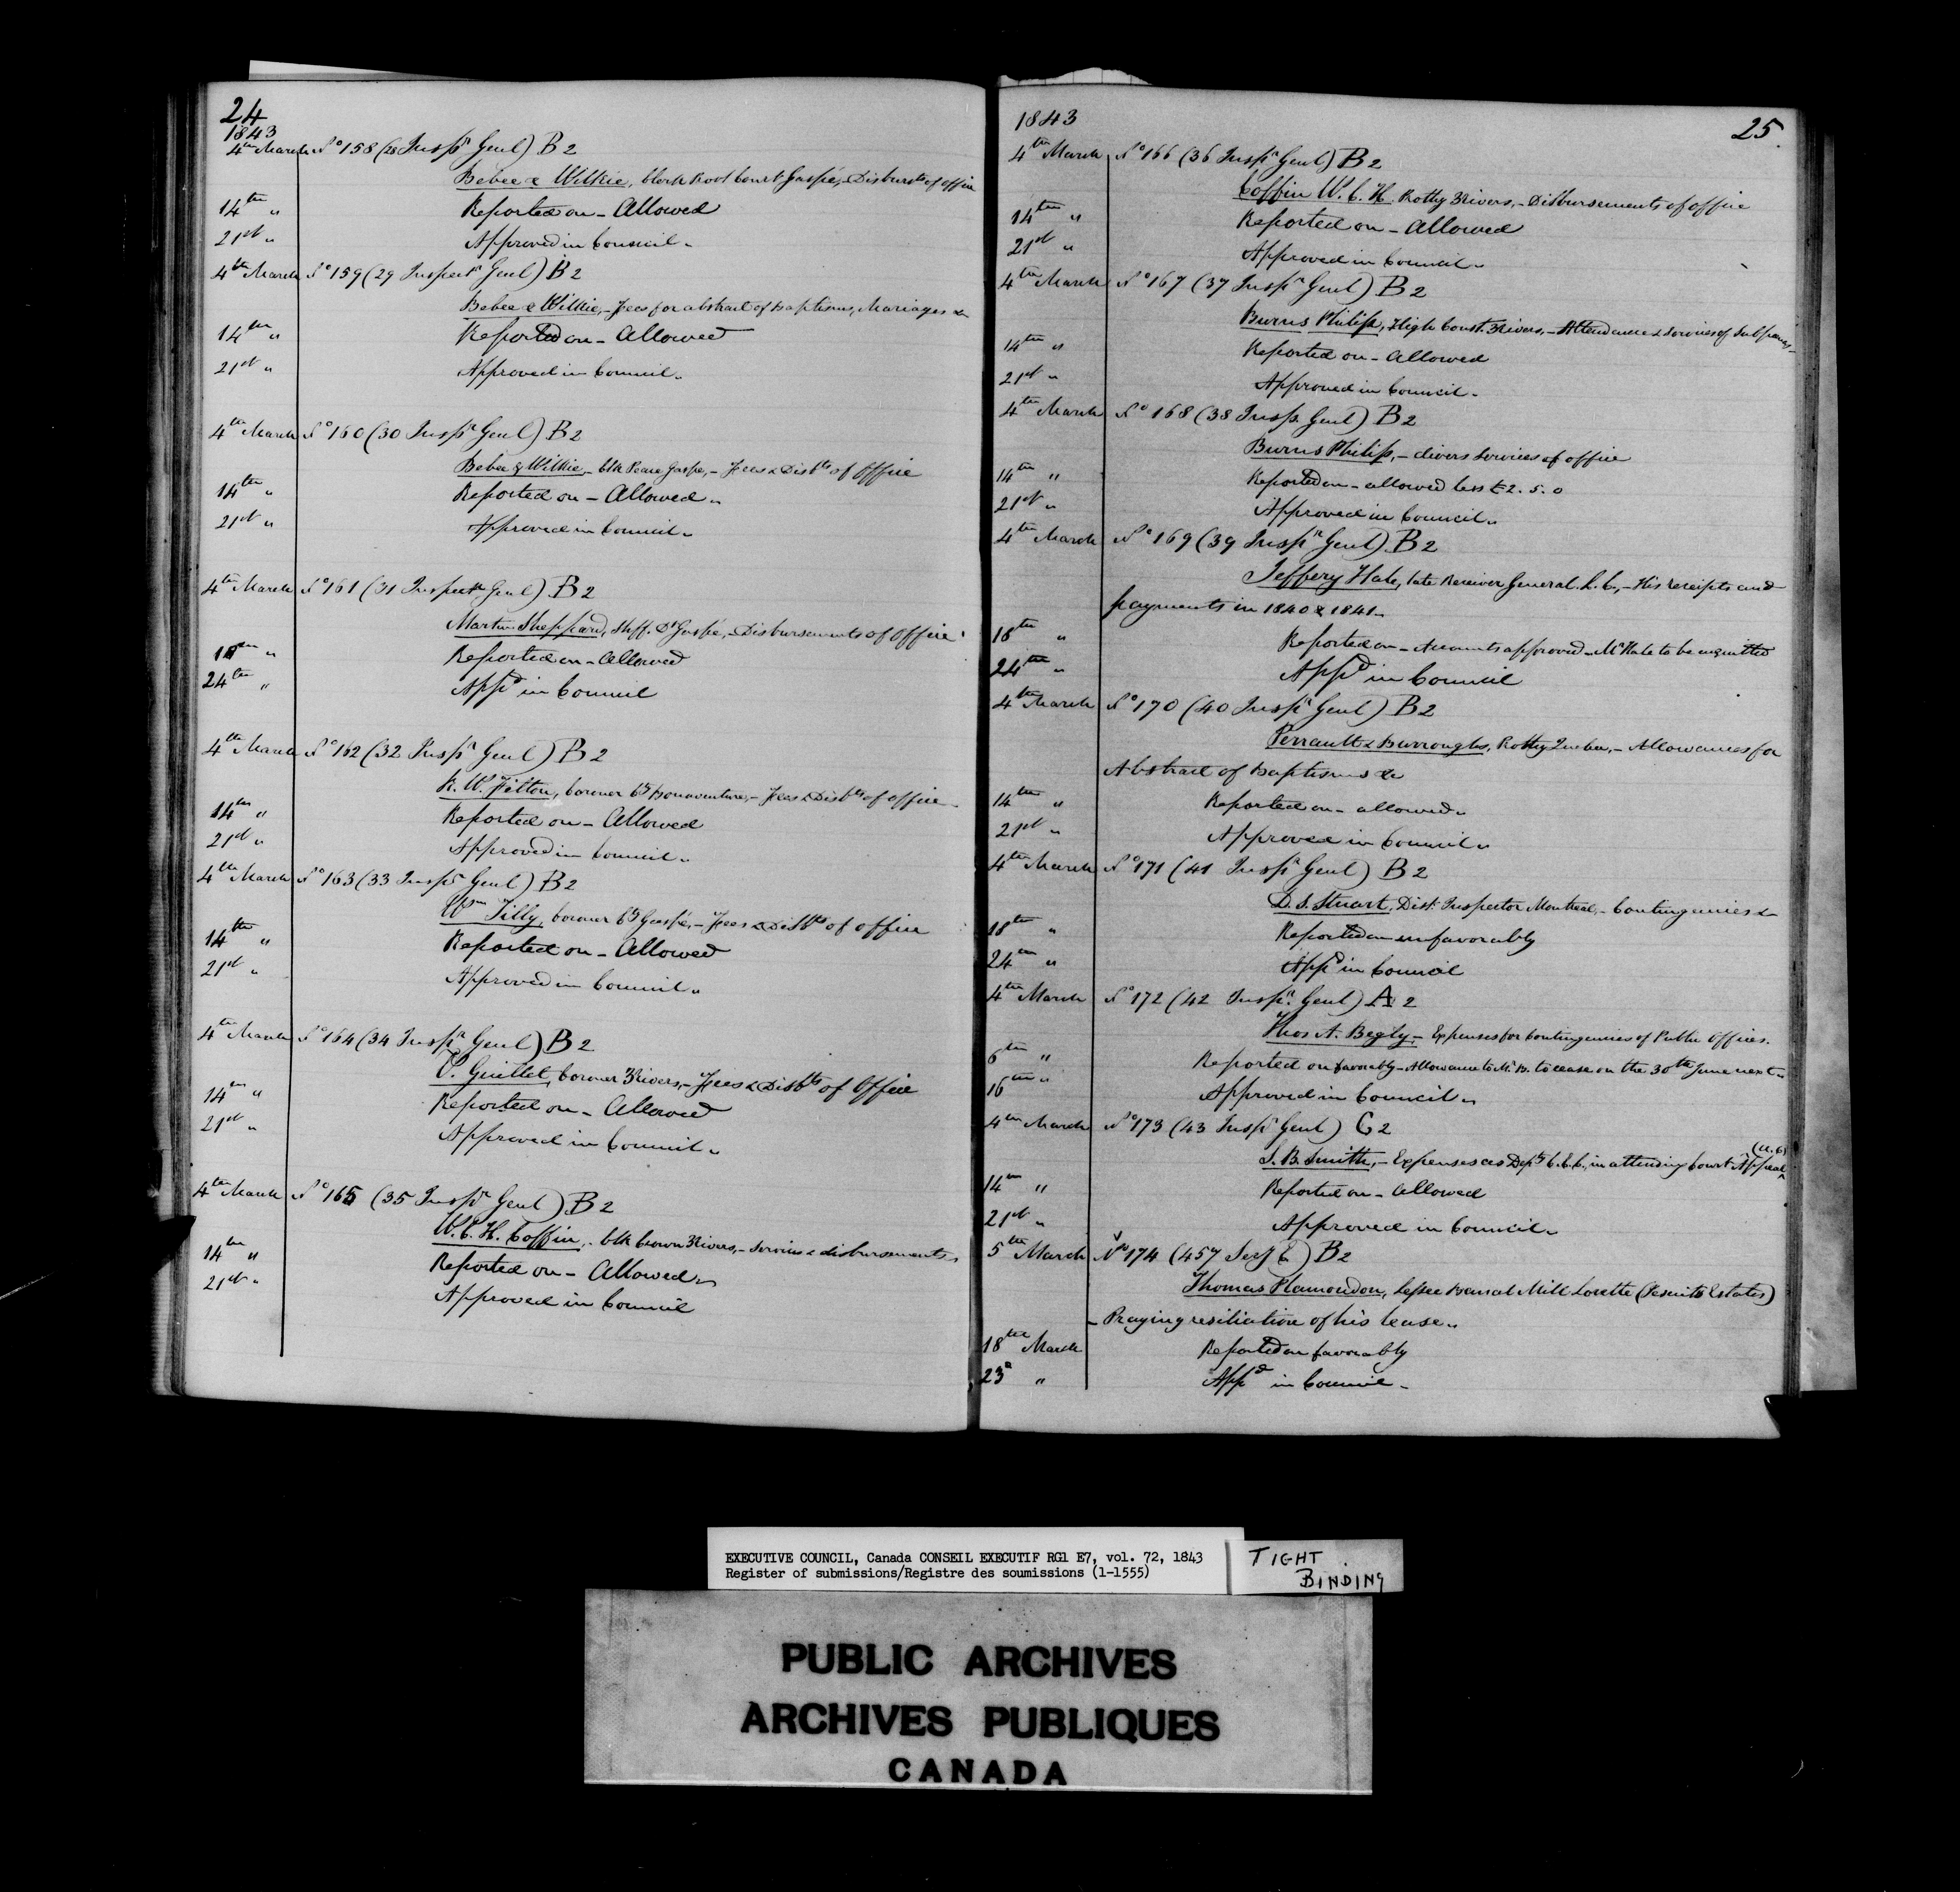 24
1843
4th March No 158 (28 Inspr Genl) B2
Bebee & Wilkie, Clerk Provl Court Gaspé, - Disbursts of office
14th " Reported on - Allowed
21st " Approved in Council.
4th March No 159 (29 Inspectr Genl) B2
Bebee & Wilkie, - Fees for abstract of Baptisms, Mariages &c
14th " Reported on - Allowed
21st " Approved in Council.
4th March No 160 (30 Inspr Genl) B2
Bebee & Wilkie - Clk Peace Gaspe, - Fees & Disbts of Office
14th " Reported on - Allowed.
21st " Approved in Council.
4th March No 161 (31 Inspectr Genl) B2
Martin Sheppard, Shff. Dt Gaspé, - Disbursements of Office.
18th " Reported on - Allowed
24th " Appd in Council
4th March No 162 (32 Inspr Genl) B2
R. W. Felton, Coroner Cy Bonaventure, - Fees & Disbts of office
14th " Reported on - Allowed
21st " Approved in Council.
4th March No 163 (33 Inspr Genl) B2
Wm Tilly, Coroner Cy Gaspé, - Fees & Disbts of office
14th " Reported on - Allowed
21st " Approved in Council.
4th March No 164 (34 Inspr Genl) B2
V. Guillet, Coroner 3Rivers, - Fees & Disbts of Office
14th " Reported on - Allowed
21st " Approved in Council.
4th March No 165 (35 Inspr Genl) B2
W. C. H. Coffin, Clk Crown 3Rivers, - Services & disbursements
14th " Reported on - Allowed
21st " Approved in Council
1843
25.
4th March No 166 (36 Inspr Genl) B2
Coffin W. C. H. Prothy 3Rivers, - Disbursements of office
14th " Reported on - Allowed
21st " Approved in Council.
4th March No 167 (37 Inspr Genl) B2
Burns Philip, High Const. 3Rivers, - Attendance & Services of Subpoenas -
14th " Reported on - Allowed
21st " Approved in Council.
4th March No 168 (38 Insp. Genl) B2
Burns Philip, - divers services of office
14th " Reported on - allowed less £2. 5. 0
21st " Approved in Council.
4th March No 169 (39 Inspr Genl) B2
Jeffery Hale, late Receiver General L. C., - His receipts and
payments in 1840 & 1841 -
18th " Reported on - Accounts approved - Mr Hale to be acquitted
24th " Appd in Council
4th March No 170 (40 Inspr Genl) B2
Perrault & Burroughs, Prothy Quebec, - Allowances for
Abstract of Baptisms &c
14th " Reported on - allowed.
21st " Approved in Council.
4th March No 171 (41 Inspr Genl) B2
D. S. Stuart, Dist. Inspector Montreal, - Contingencies &c
18th " Reported on unfavorably
24th " Appd in Council
4th March No 172 (42 Inspr Genl) A2
Thos A. Begly, - Expenses for Contingencies of Public Offices.
6th " Reported on favorably - Allowance to Mr B. to cease on the 30th June next.
16th " Approved in Council.
4th March No 173 (43 Inspr Genl) C2
(U. C.)
S. B. Smith, - Expenses as Depy C. E. C., in attending Court Appeal
14th " Reported on - Allowed
21st " Approved in Council.
5th March No 174 (457 Secy E) B2
Thomas Plamondon, Lessee Banal Mill Lorette (Jesuits Estates)
- Praying resiliation of his lease.
18th March Reported on favorably
23d " Appd in Council -
EXECUTIVE COUNCIL, Canada CONSEIL EXECUTIF RG1 E7, vol. 72, 1843
Register of submissions/Registre des soumissions (1-1555)
TIGHT
BINDING
PUBLIC ARCHIVES
ARCHIVES PUBLIQUES
CANADA